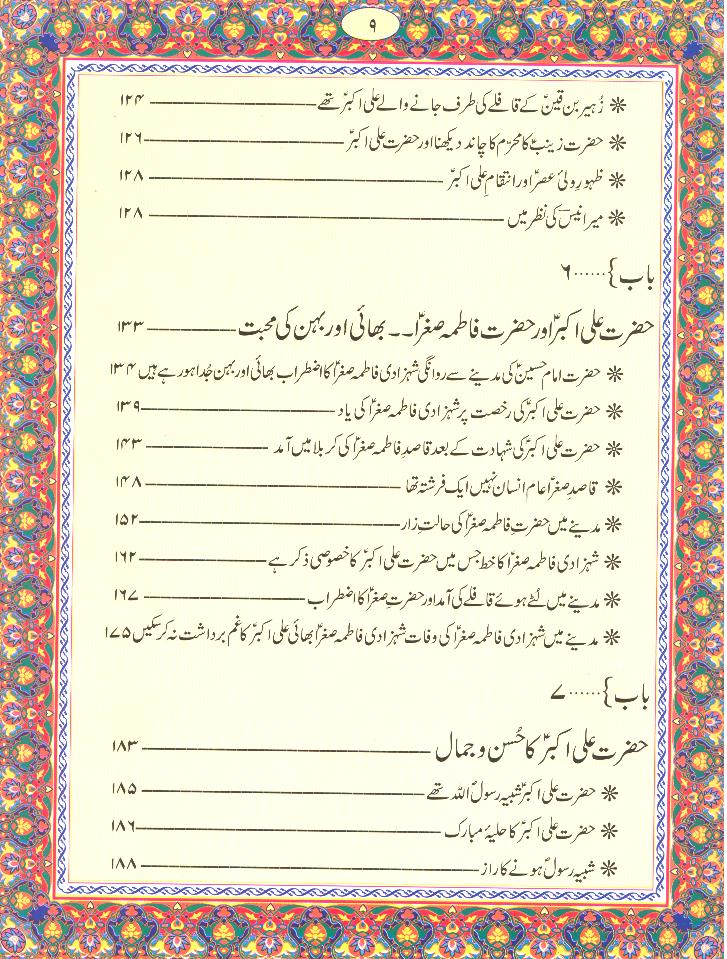 ۹
❊ زُہیر بن قینؑ کے قافلے کی طرف جانے والے علی اکبرؑ تھے ۱۲۴
❊ حضرت زینبؑ کا محرّم کا چاند دیکھنا اور حضرت علی اکبرؑ ۱۲۶
❊ ظہورِ ولیٔ عصرؑ اور انتقامِ علی اکبرؑ ۱۲۸
❊ میر انیسؔ کی نظر میں ۱۲۸
باب } ...... ۶
حضرت علی اکبرؑ اور حضرت فاطمہ صغراؑ .. بھائی اور بہن کی محبت ۱۳۳
❊ حضرت امام حسینؑ کی مدینے سے روانگی شہزادی فاطمہ صغراؑ کا اضطراب بھائی اور بہن جُدا ہو رہے ہیں ۱۳۴
❊ حضرت علی اکبرؑ کی رخصت پر شہزادی فاطمہ صغراؑ کی یاد ۱۳۹
❊ حضرت علی اکبرؑ کی شہادت کے بعد قاصدِ فاطمہ صغراؑ کی کربلا میں آمد ۱۴۳
❊ قاصدِ صغراؑ عام انسان نہیں ایک فرشتہ تھا ۱۴۸
❊ مدینے میں حضرتِ فاطمہ صغراؑ کی حالتِ زار ۱۵۲
❊ شہزادی فاطمہ صغراؑ کا خط جس میں حضرت علی اکبرؑ کا خصوصی ذکر ہے ۱۶۲
❊ مدینے میں لُٹے ہوئے قافلے کی آمد اور حضرتِ صغراؑ کا اضطراب ۱۶۷
❊ مدینے میں شہزادی فاطمہ صغراؑ کی وفات شہزادی فاطمہ صغراؑ بھائی علی اکبرؑ کا غم برداشت نہ کر سکیں ۱۷۵
باب } ...... ۷
حضرت علی اکبرؑ کا حُسن و جمال ۱۸۳
❊ حضرت علی اکبرؑ شبیہ رسولؐ اللہ تھے ۱۸۵
❊ حضرت علی اکبرؑ کا حلیۂ مبارک ۱۸۶
❊ شبیہ رسولؐ ہونے کا راز ۱۸۸